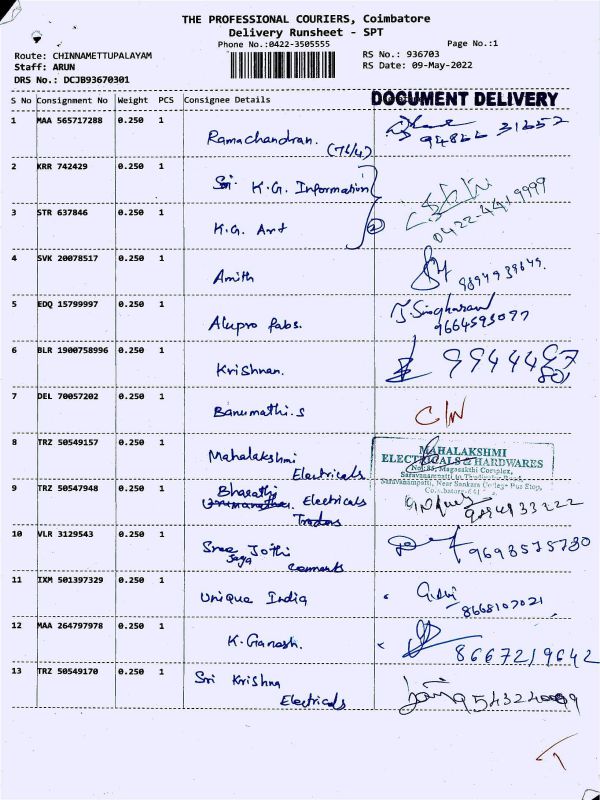 THE PROFESSIONAL COURIERS, Coimbatore
Delivery Runsheet - SPT
Phone No.:0422-3505555
Page No.:1
Route: CHINNAMETTUPALAYAM
RS No.: 936703
Staff: ARUN
RS Date: 09-May-2022
DRS No.: DCJB93670301
S No Consignment No Weight PCS Consignee Details DOCUMENT DELIVERY
1 MAA 565717288 0.250 1 Ramachandran. (76/4) 94866 31652
2 KRR 742429 0.250 1 Sri. K.G. Information
3 STR 637846 0.250 1 K.G. Art 2 0422-4419999
4 SVK 20078517 0.250 1 Amith 9894939649.
5 EDQ 15799997 0.250 1 Alupro fabs. 9664593077
6 BLR 1900758996 0.250 1 Krishnan.
7 DEL 70057202 0.250 1 Banumathi.s C/N
8 TRZ 50549157 0.250 1 Mahalakshmi Electricals
MAHALAKSHMI
ELECTRICALS & HARDWARES
Saravanampatti, Near Sankara College Bus Stop,
9 TRZ 50547948 0.250 1 Bharathi Electricals Traders
10 VLR 3129543 0.250 1 Sree Jaya Jothi 9698575780
11 IXM 501397329 0.250 1 Unique India 8668107021
12 MAA 264797978 0.250 1 K. Ganesh. 8667219642
13 TRZ 50549170 0.250 1 Sri Krishna Electricals